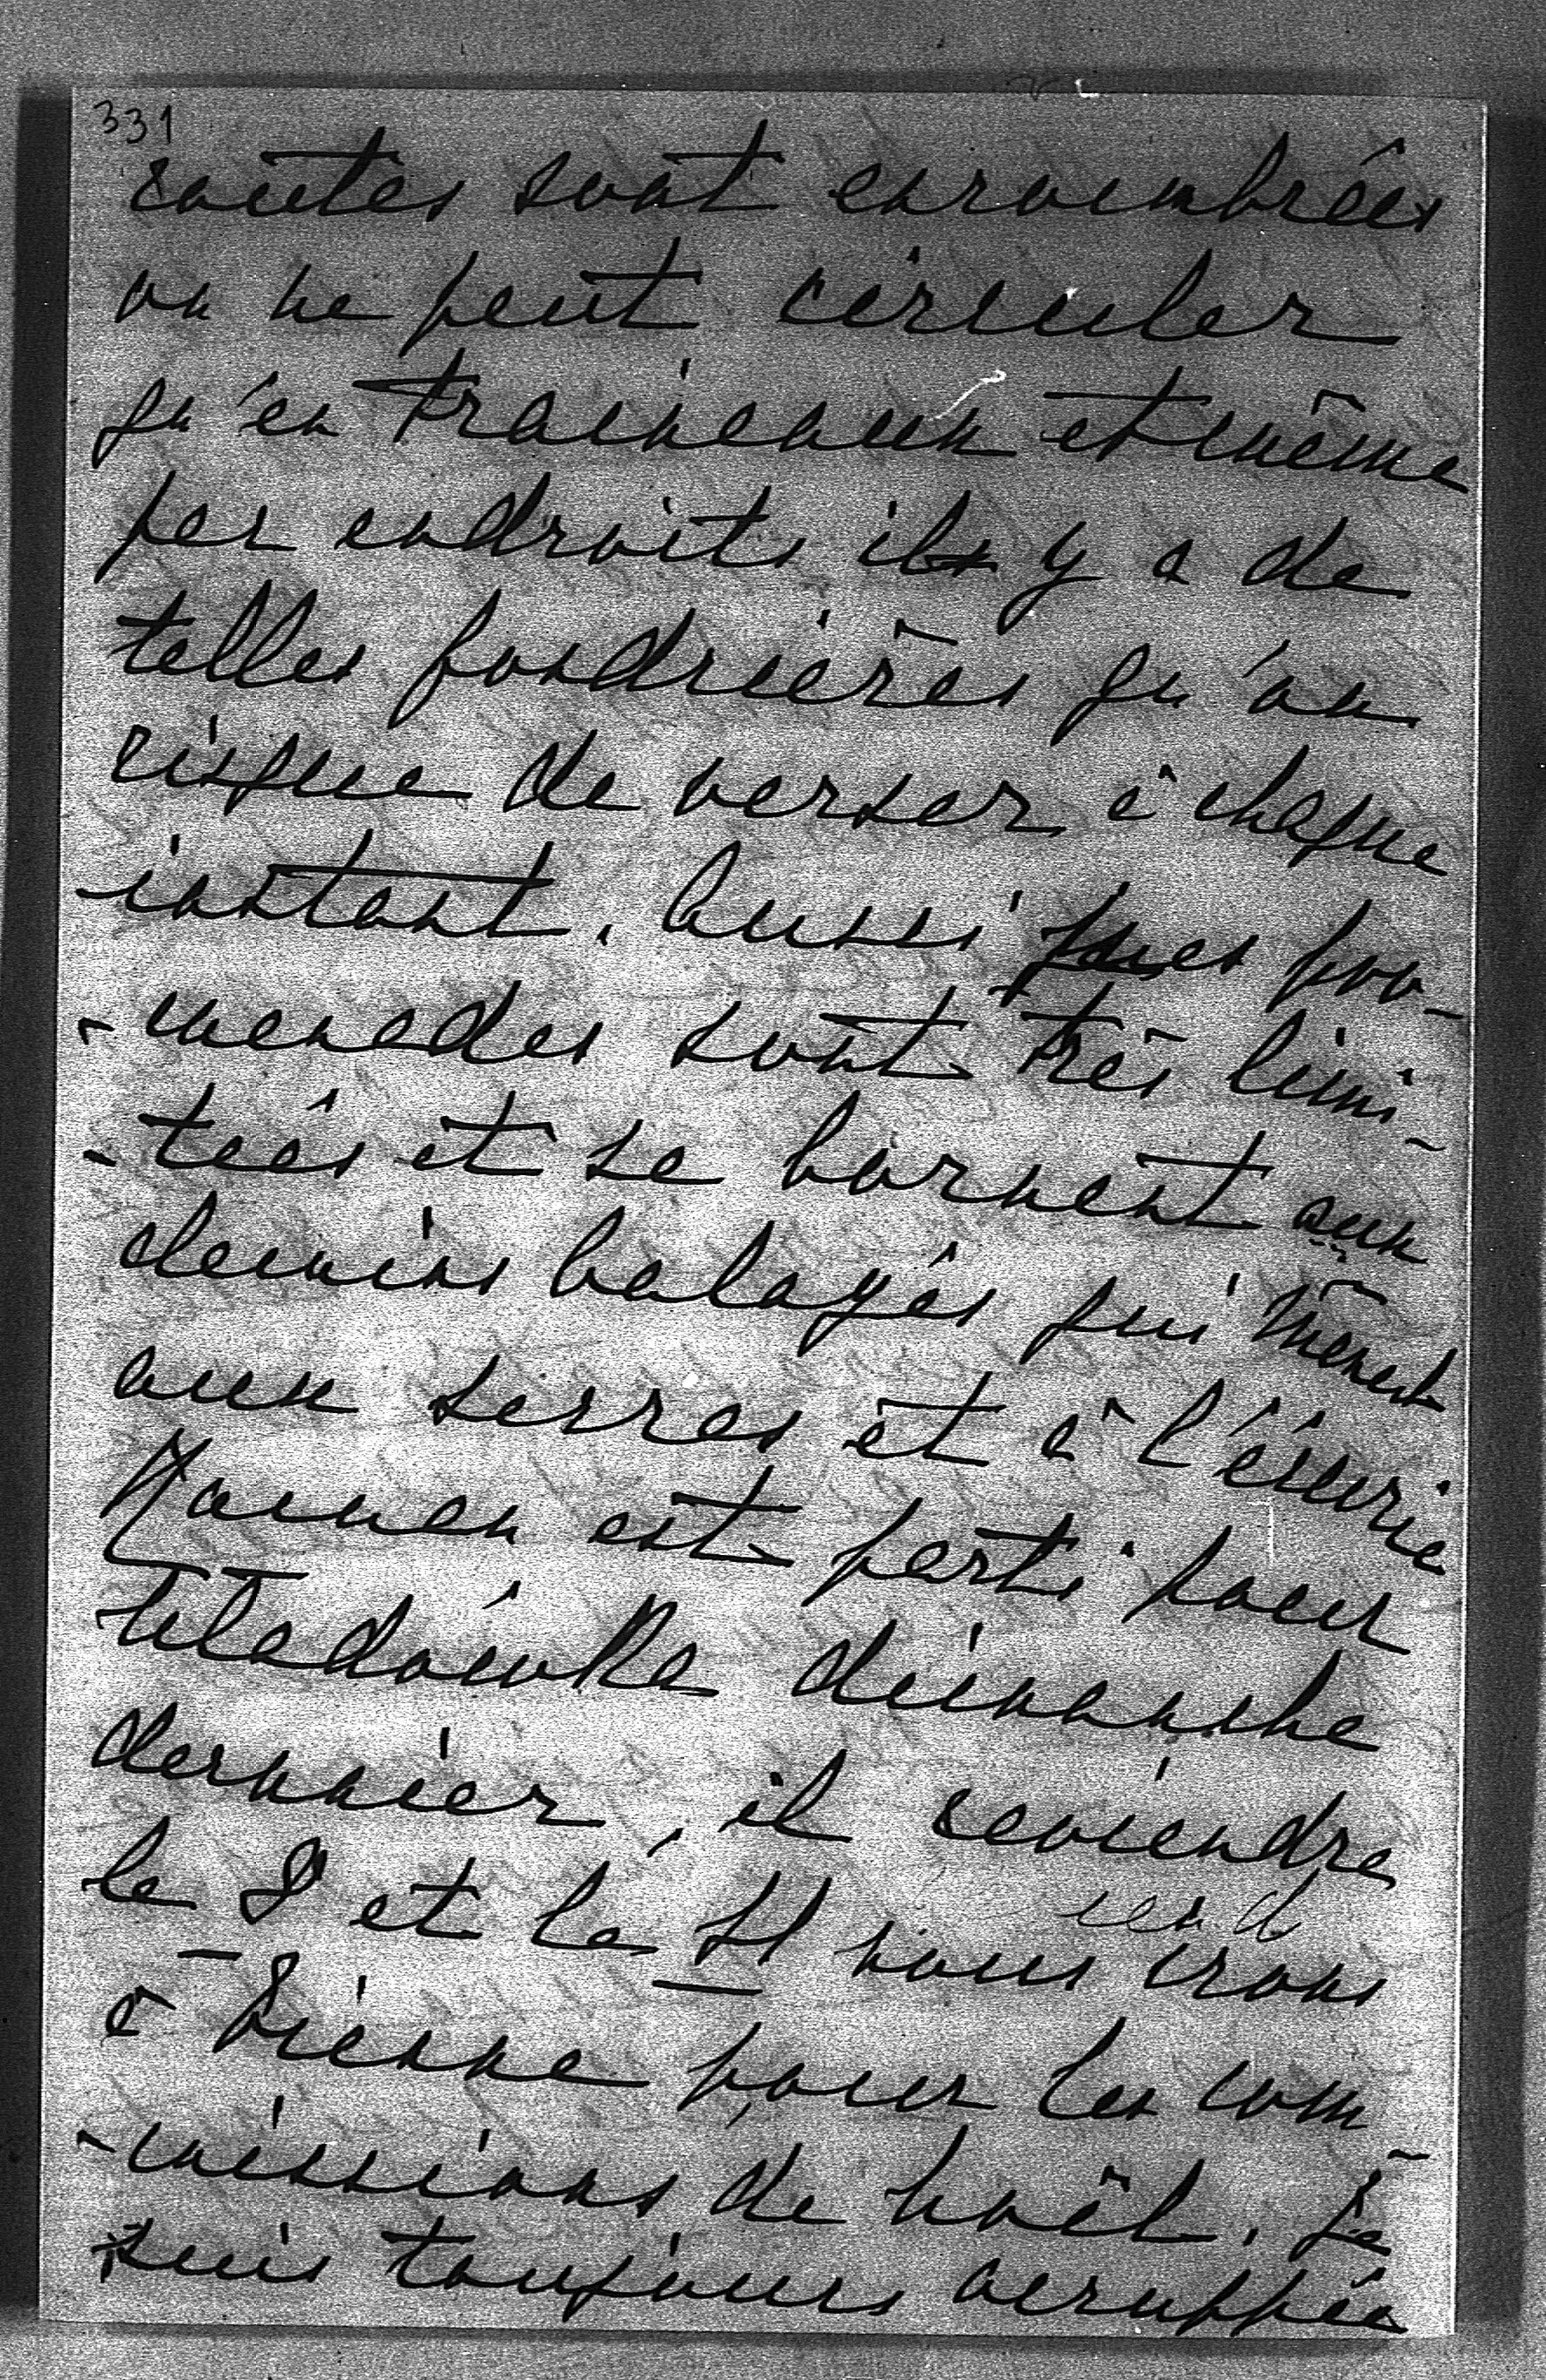 331
routes sont encombrées
on ne peut circuler
qu'en traineaux et même
par endroits il y a de
telles fondrières qu'on
risque de verser à chaque
instant. Aussi mes pro-
-menades sont très limi-
-tées et se bornent aux
chemins balayés qui mènent
aux serres et à l'écurie
Roman est parti pour
dimanche
dernier, il reviendra
le 8 et le 11 nous irons
à Vienne pour les com-
-missions de Noël. Je
suis toujours occuppée